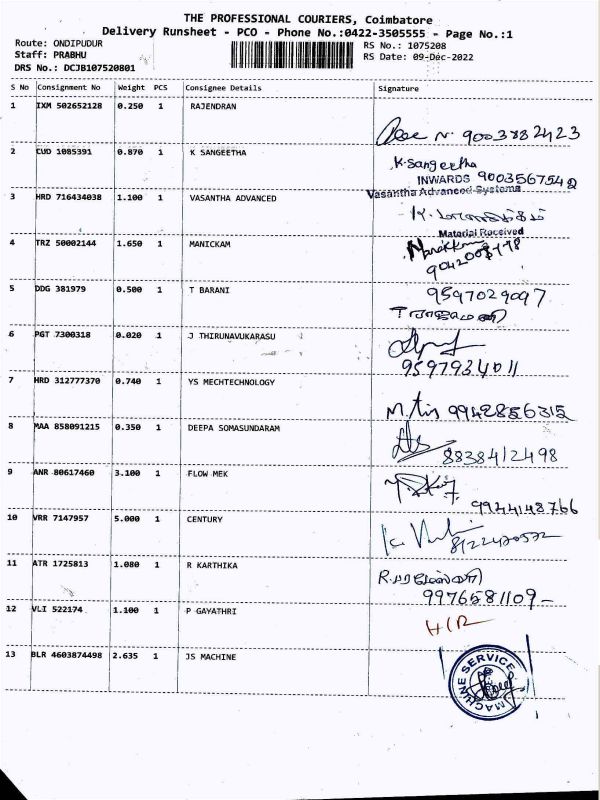 THE PROFESSIONAL COURIERS, Coimbatore
Delivery Runsheet - PCO - Phone No.:0422-3505555 - Page No.:1
Route: ONDIPUDUR
RS No.: 1075208
Staff: PRABHU
RS Date: 09-Dec-2022
DRS No.: DCJB107520801
S No Consignment No Weight PCS Consignee Details Signature
1 IXM 502652128 0.250 1 RAJENDRAN
9003882423
2 CUD 1085391 0.870 1 K SANGEETHA
K. Sangeetha
INWARDS 9003567542
3 HRD 716434038 1.100 1 VASANTHA ADVANCED
Vasantha Advanced Systems
Material Received
4 TRZ 50002144 1.650 1 MANICKAM
5 DDG 381979 0.500 1 T BARANI
9597029097
6 PGT 7300318 0.020 1 J THIRUNAVUKARASU
9597934011
7 HRD 312777370 0.740 1 YS MECHTECHNOLOGY
9942856315
8 MAA 858091215 0.350 1 DEEPA SOMASUNDARAM
8838412498
9 ANR 80617460 3.100 1 FLOW MEK
9944148766
10 VRR 7147957 5.000 1 CENTURY
11 ATR 1725813 1.080 1 R KARTHIKA
9976581109-
12 VLI 522174 1.100 1 P GAYATHRI
13 BLR 4603874498 2.635 1 JS MACHINE
MACHINE SERVICE